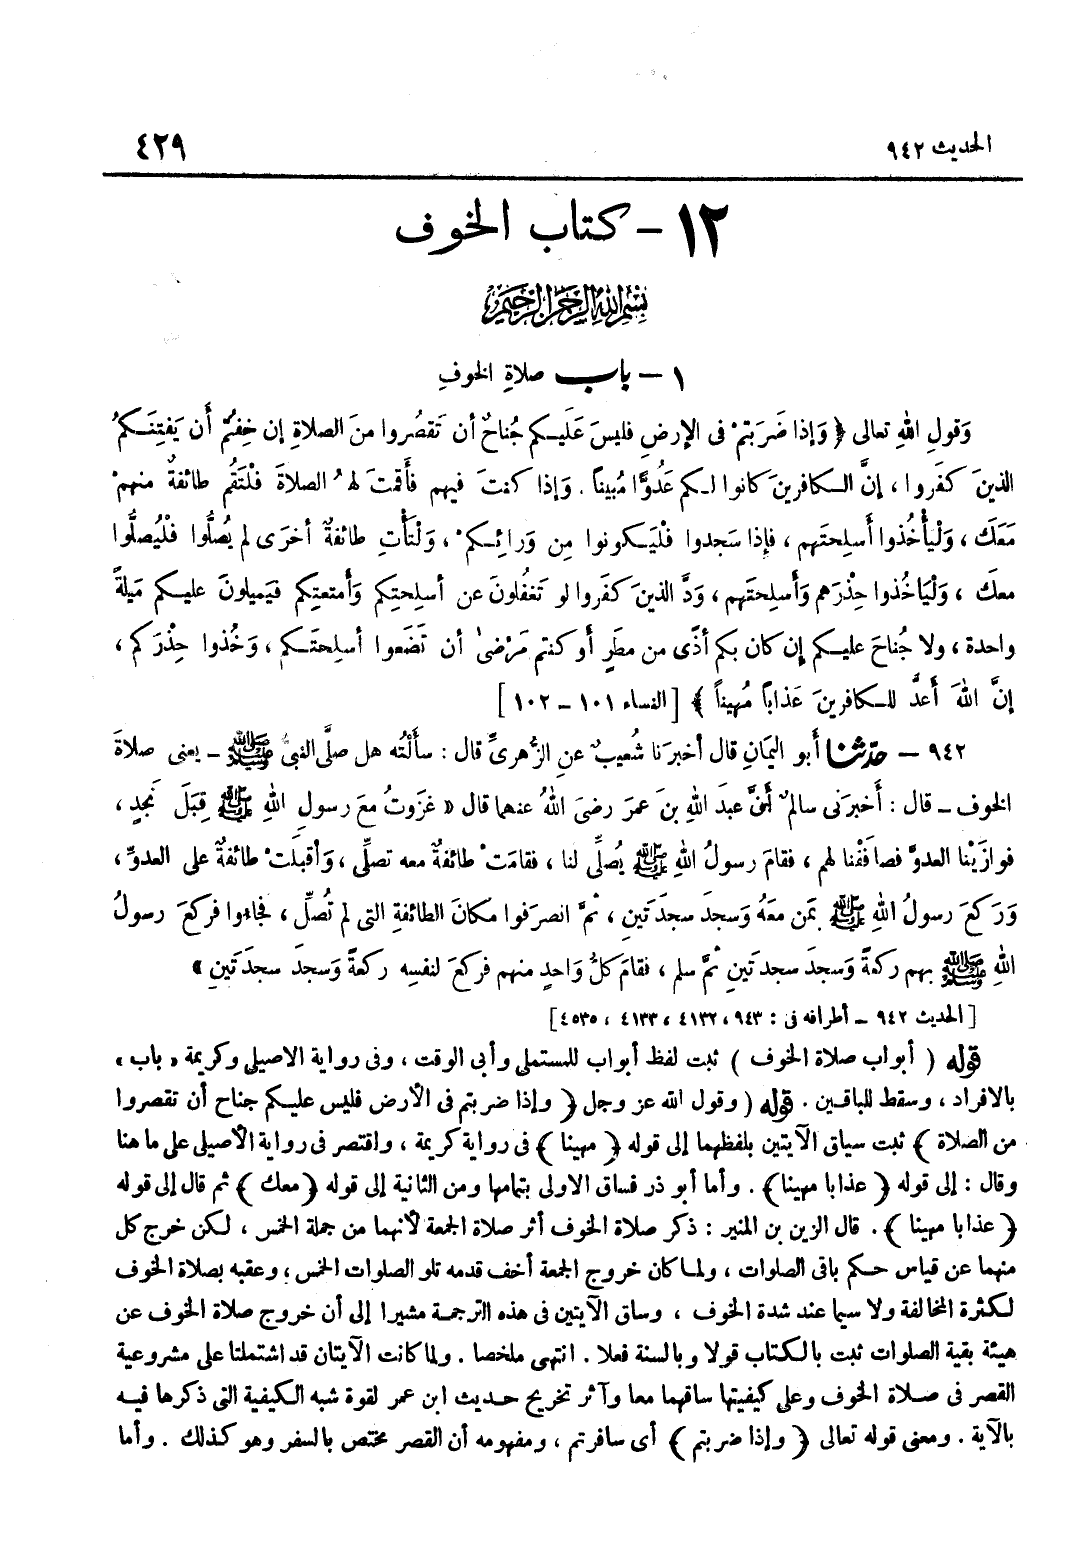 الحديث ٩٤٢
٤٢٩
١٢ - كتاب الخوف
بسم الله الرحمن الرحيم
١ - باب صلاةِ الخوفِ
وَقولِ اللهِ تعالى ﴿ وَإذا ضَرَبتمْ فى الإرضِ فليسَ عَلَيكم جُناحٌ أن تَقصُروا منَ الصلاةِ إن خِفتُم أَن يَفتِنَكمُ
الذينَ كفَروا ، إنَّ الكافرينَ كانوا لكم عَدُوًّا مُبيناً . وَإذا كنتَ فيهم فأَقمتَ لهمُ الصلاةَ فلْتَقُم طائفةٌ منهمْ
مَعَكَ ، وَلْيأْخُذوا أَسلِحتَهم ، فإذا سَجدوا فلْيَكونوا مِن وَرائِكمْ ، وَلْتأْتِ طائفةٌ أخرَى لم يُصلُّوا فلْيُصلُّوا
معكَ ، وَلْيَأخُذوا حِذرَهم وَأَسلِحتَهم ، وَدَّ الذينَ كفَروا لو تَغفُلونَ عن أسلِحتِكم وَأَمتعتِكم فيَميلونَ عليكم مَيلةً
واحدة ، ولا جُناحَ عليكم إن كان بكم أذًى من مطَرٍ أو كنتم مَرْضىٰ أن تَضَعوا أسلِحتَكم ، وَخُذوا حِذْرَكم ،
إنَّ اللهَ أَعدَّ للكافرينَ عَذاباً مُهيناً ﴾ [ النساء ١٠١ - ١٠٢ ]
٩٤٢ - حدّثنا أَبو اليمانِ قال أخبرَنا شُعيبٌ عنِ الزُّهرىِّ قال : سأَلتُه هل صلَّى النبىُّ ﷺ - يعنى صلاةَ
الخوف - قال : أَخبرَنى سالمٌ أنَّ عبدَ اللهِ بنَ عمرَ رضىَ اللهُ عنهما قال « غزَوتُ معَ رسولِ اللهِ ﷺ قِبَلَ نَجدٍ ،
فوازَينا العدوَّ فصافَفْنا لهم ، فقامَ رسولُ اللهِ ﷺ يُصلِّى لنا ، فقامَتْ طائفةٌ معه تصلِّى ، وَأقبلَتْ طائفةٌ على العدوِّ ،
وَرَكعَ رسولُ اللهِ ﷺ بمَن معَهُ وَسجدَ سجدَتين ، ثمَّ انصرَفوا مكانَ الطائفةِ التى لم تُصلِّ ، فجاءوا فركعَ رسولُ
اللهِ ﷺ بهم ركعةً وَسجدَ سجدَتَينِ ثمَّ سلم ، فقامَ كلُّ وَاحدٍ منهم فركعَ لنفسِه ركعةً وَسجدَ سجدَتَينِ »
[ الحديث ٩٤٢ - أطرافه فى : ٩٤٣ ، ٤١٣٢ ، ٤١٣٣ ، ٤٥٣٥ ]
قوله ( أبواب صلاة الخوف ) ثبت لفظ أبواب للمستملى وأبى الوقت ، وفى رواية الاصيلى وكريمة « باب »
بالافراد ، وسقط للباقين . قوله ( وقول الله عز وجل ﴿ وإذا ضربتم فى الأرض فليس عليكم جناح أن تقصروا
من الصلاة ﴾ ثبت سياق الآيتين بلفظهما إلى قوله ﴿ مهينا ﴾ فى رواية كريمة ، واقتصر فى رواية الأصيلى على ما هنا
وقال : إلى قوله ﴿ عذابا مهينا ﴾ . وأما أبو ذر فساق الاولى بتمامها ومن الثانية إلى قوله ﴿ معك ﴾ ثم قال إلى قوله
﴿ عذابا مهينا ﴾ . قال الزين بن المنير : ذكر صلاة الخوف أثر صلاة الجمعة لأنهما من جملة الخمس ، لكن خرج كل
منهما عن قياس حكم باقى الصلوات ، ولما كان خروج الجمعة أخف قدمه تلو الصلوات الخمس ، وعقبه بصلاة الخوف
لكثرة المخالفة ولا سيما عند شدة الخوف ، وساق الآيتين فى هذه الترجمة مشيرا إلى أن خروج صلاة الخوف عن
هيئة بقية الصلوات ثبت بالكتاب قولا وبالسنة فعلا . انتهى ملخصا . ولما كانت الآيتان قد اشتملتا على مشروعية
القصر فى صلاة الخوف وعلى كيفيتها ساقهما معا وآثر تخريج حديث ابن عمر لقوة شبه الكيفية التى ذكرها فيه
بالآية . ومعنى قوله تعالى ﴿ وإذا ضربتم ﴾ أى سافرتم ، ومفهومه أن القصر مختص بالسفر وهو كذلك . وأما